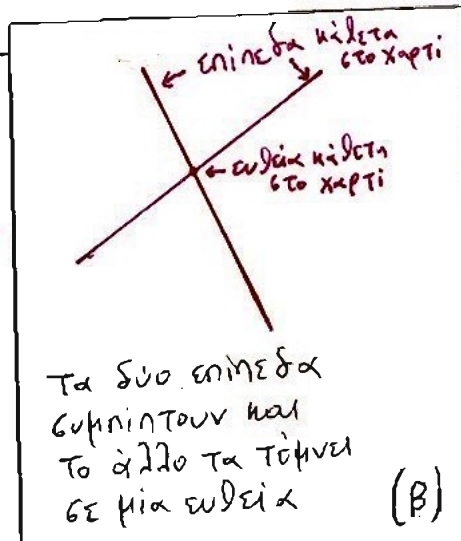 επίπεδα κάθετα
στο χαρτί
ευθεία κάθετη
στο χαρτί
Τα δύο επίπεδα
συμπίπτουν και
το άλλο τα τέμνει
σε μία ευθεία
(β)